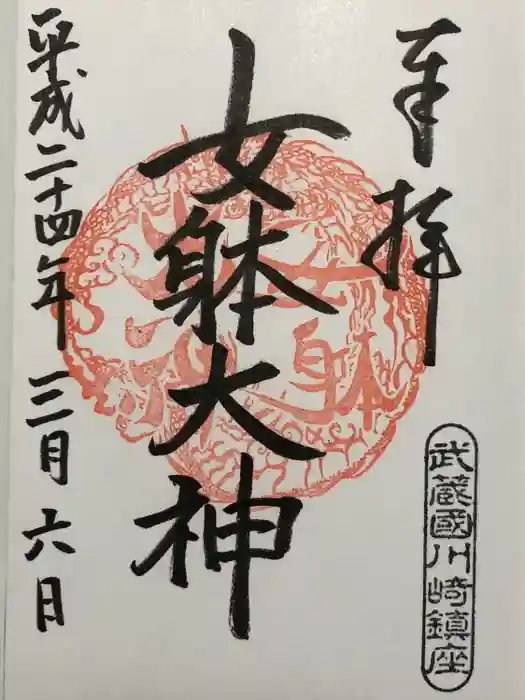 奉拝
武蔵國川崎鎮座
女躰大神
平成二十四年三月六日